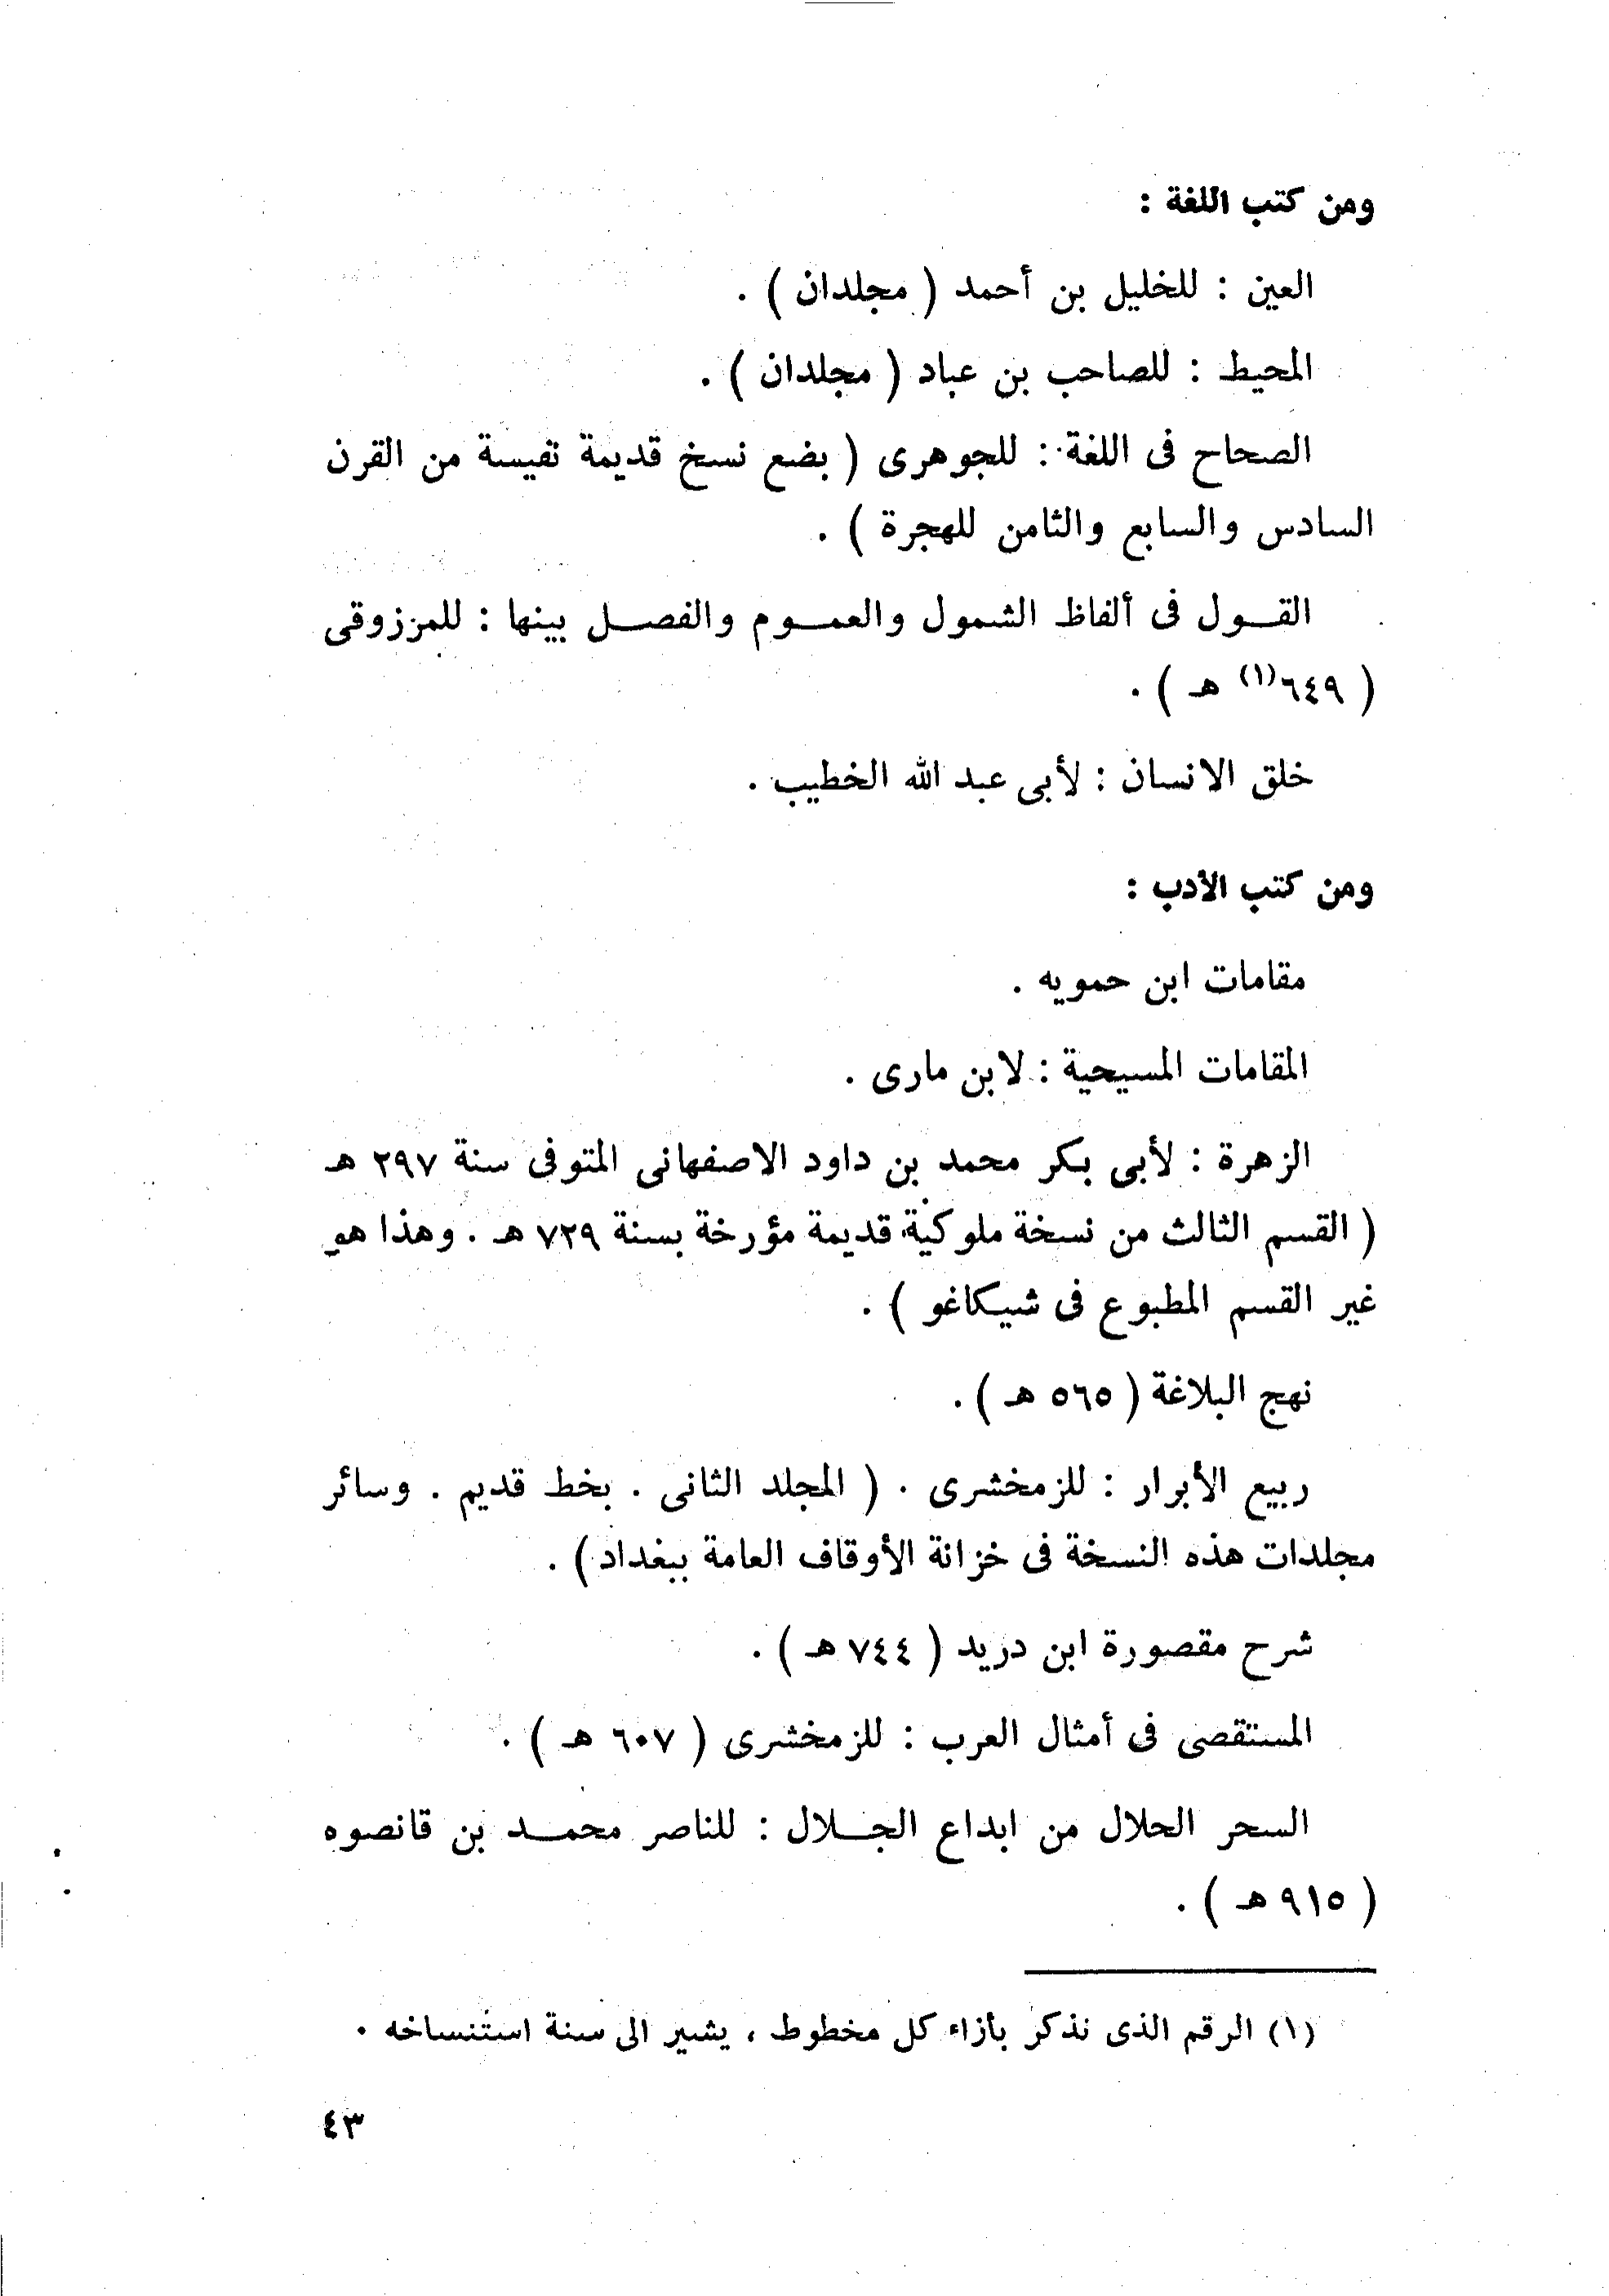 ومن كتب اللغة :
العين : للخليل بن أحمد ( مجلدان ) .
المحيط : للصاحب بن عباد ( مجلدان ) .
الصحاح فى اللغة : للجوهرى ( بضع نسخ قديمة نفيسة من القرن
السادس والسابع والثامن للهجرة ) .
القول فى ألفاظ الشمول والعموم والفصل بينها : للمرزوقى
( ٦٤٩(١) هـ ) .
خلق الانسان : لأبى عبد الله الخطيب .
ومن كتب الأدب :
مقامات ابن حمويه .
المقامات المسيحية : لابن مارى .
الزهرة : لأبى بكر محمد بن داود الاصفهانى المتوفى سنة ٢٩٧ هـ
( القسم الثالث من نسخة ملوكية قديمة مؤرخة بسنة ٧٢٩ هـ . وهذا هو
غير القسم المطبوع فى شيكاغو ) .
نهج البلاغة ( ٥٦٥ هـ ) .
ربيع الأبرار : للزمخشرى . ( المجلد الثانى . بخط قديم . وسائر
مجلدات هذه النسخة فى خزانة الأوقاف العامة ببغداد ) .
شرح مقصورة ابن دريد ( ٧٤٤ هـ ) .
المستقصى فى أمثال العرب : للزمخشرى ( ٦٠٧ هـ ) .
السحر الحلال من ابداع الجلال : للناصر محمد بن قانصوه
( ٩١٥ هـ ) .
(١) الرقم الذى نذكر بأزاء كل مخطوط ، يشير الى سنة استنساخه .
٤٣